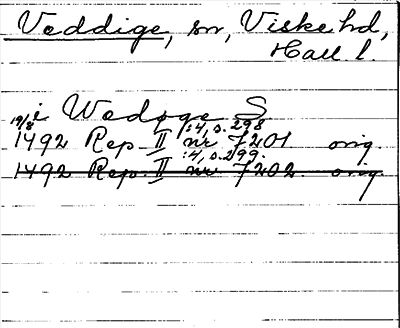 Veddige, sn, Viske hd,
Hall l.
i Wedyge S
19/8 :4, s. 298
1492 Rep. II nr 7201 orig.
:4, s. 299.
1492 Rep. II nr 7202 orig